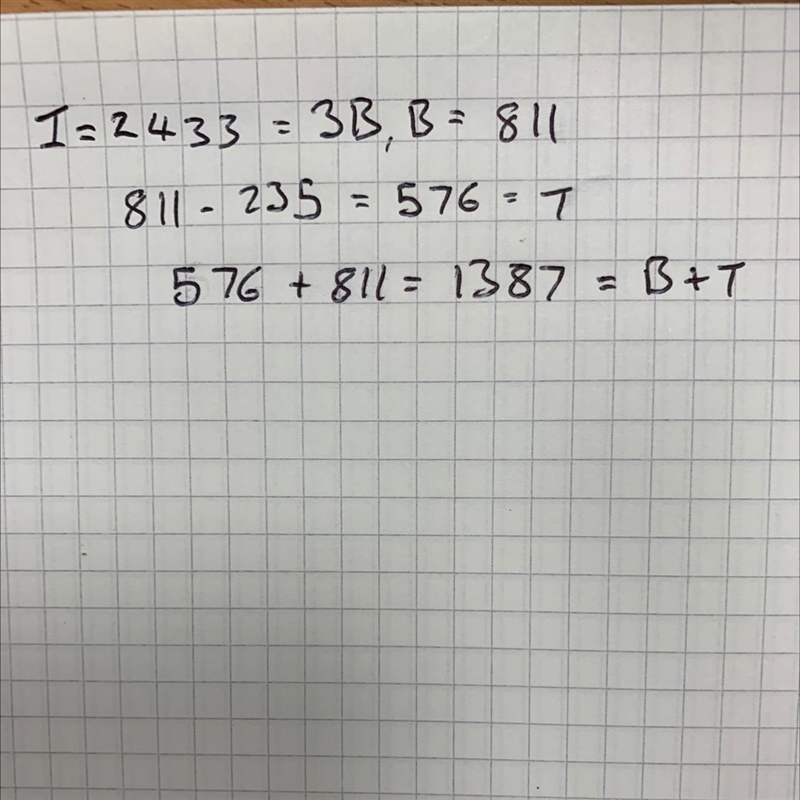 I = 2433 = 3B, B = 811
811 - 235 = 576 = T
576 + 811 = 1387 = B + T